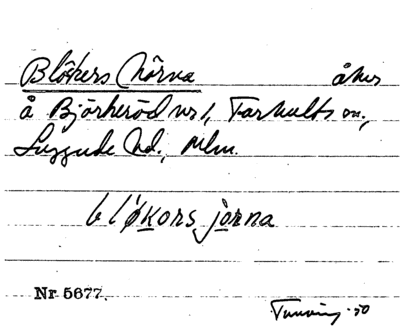 Blökers hörna åker
å Björkeröd nr 1, Farhults sn,
Luggude hd, Mlm.
bló̷kors jörna
Nr 5677.